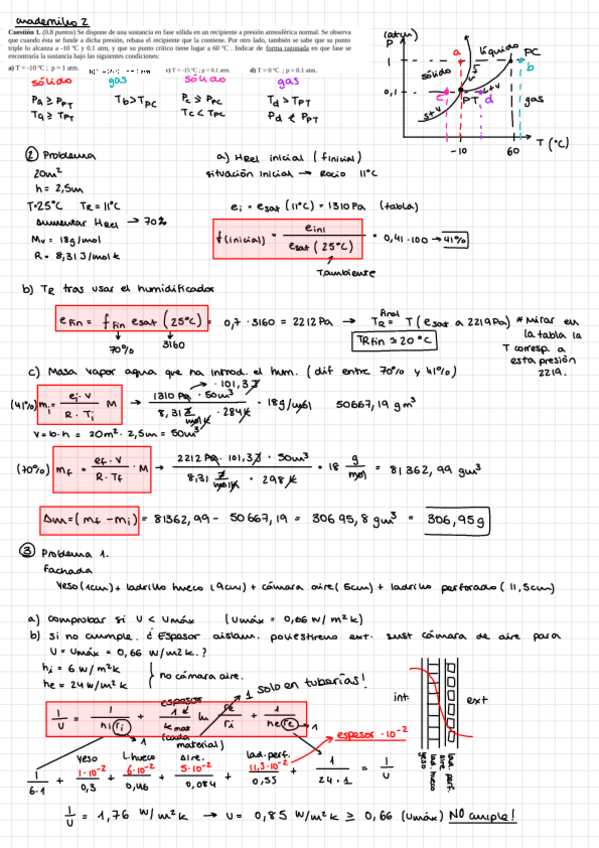 cuadernillo 2
Cuestión 1. (0.8 puntos) Se dispone de una sustancia en fase sólida en un recipiente a presión atmosférica normal. Se observa
que cuando ésta se funde a dicha presión, rebasa el recipiente que la contiene. Por otro lado, también se sabe que su punto
triple lo alcanza a -10 ºC y 0.1 atm, y que su punto crítico tiene lugar a 60 ºC . Indicar de forma razonada en que fase se
encontraría la sustancia bajo las siguientes condiciones:
a) T = -10 ºC ; p = 1 atm. c) T = -15 ºC ; p = 0.1 atm. d) T = 0 ºC ; p = 0.1 atm.
sólido gas sólido gas
Pa ≥ PPT Tb > TPC Pc ≤ PPC Td > TPT
Ta ≥ TPT Tc < TPC Pd ≤ PPT
(atm)
P
1 a líquido PC
sólido s+L b
0,1 c PT d L+v gas
s+v
-10 60 T (ºC)
② Problema
20m²
h = 2,5m
T=25ºC TR = 11ºC
Aumentar HRel → 70%
Mv = 18g/mol
R = 8,31 J/mol k
a) HRel inicial (finicial)
situación inicial → Rocío 11ºC
ei = esat (11ºC) = 1310 Pa (tabla)
f(inicial) = eini / esat (25ºC) = 0,41 · 100 → 41%
Tambiente
b) TR tras usar el humidificador
efin = ffin esat (25ºC) = 0,7 · 3160 = 2212 Pa → TR final = T (esat a 2219 Pa) * Mirar en
70% 3160 TRfin ≈ 20ºC la tabla la
T corresp. a
esta presión
2219.
c) Masa vapor agua que ha introd. el hum. (dif entre 70% y 41%)
(41%) mi = ei · V / R · Ti M → 1310 Pa · 50m³ · 101,3 J / 8,31 J/molk · 284k · 18g/mol 50667,19 gm³
V = b·h = 20m² · 2,5m = 50m³
(70%) mf = ef · V / R · Tf · M → 2212 Pa · 101,3 J · 50m³ / 8,31 J/molk · 298k · 18 g/mol = 81362,99 gm³
Δm = (mf - mi) = 81362,99 - 50667,19 = 30695,8 gm³ = 306,95g
③ Problema 1.
Fachada
Yeso (1cm) + ladrillo hueco (9cm) + cámara aire (5cm) + ladrillo perforado (11,5cm)
a) comprobar si U < Umáx (Umáx = 0,66 W/m²k)
b) si no cumple. ¿ Espesor aislam. poliestireno ext. sust cámara de aire para
U = Umáx = 0,66 W/m2k.?
hi = 6 W/m²k
he = 24 W/m²k
no cámara aire.
1 solo en tuberías!
1/U = 1/hi ri + espesor 1/k mat (cada material) ln re/ri + 1/he re
1 1
espesor · 10-2
Yeso L.hueco Aire. lad.perf.
1/6·1 + 1·10-2/0,3 + 6·10-2/0,46 + 5·10-2/0,084 + 11,5·10-2/0,55 + 1/24·1 = 1/U
int. ext
yeso
lad. hueco
aire
lad. perf.
1/U = 1,76 W/m²k → U = 0,85 W/m²k ≥ 0,66 (Umáx) NO cumple!